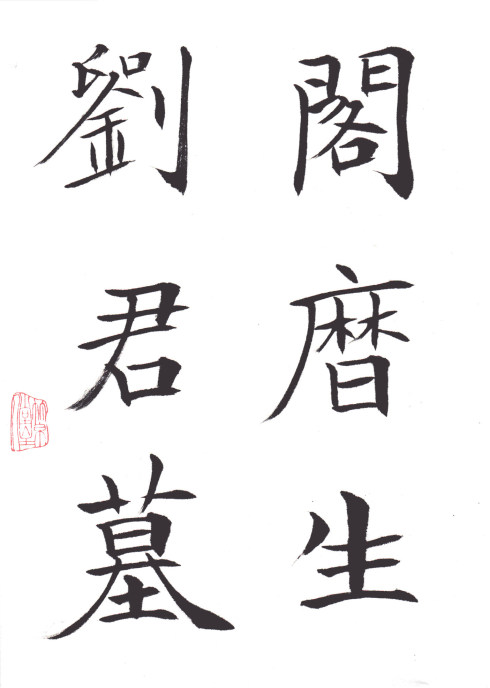 閣暦生
劉君墓